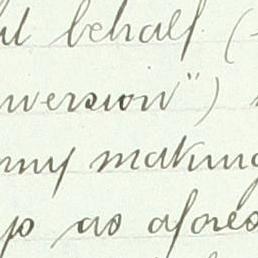 behalf (
nversion")
my making
as afores